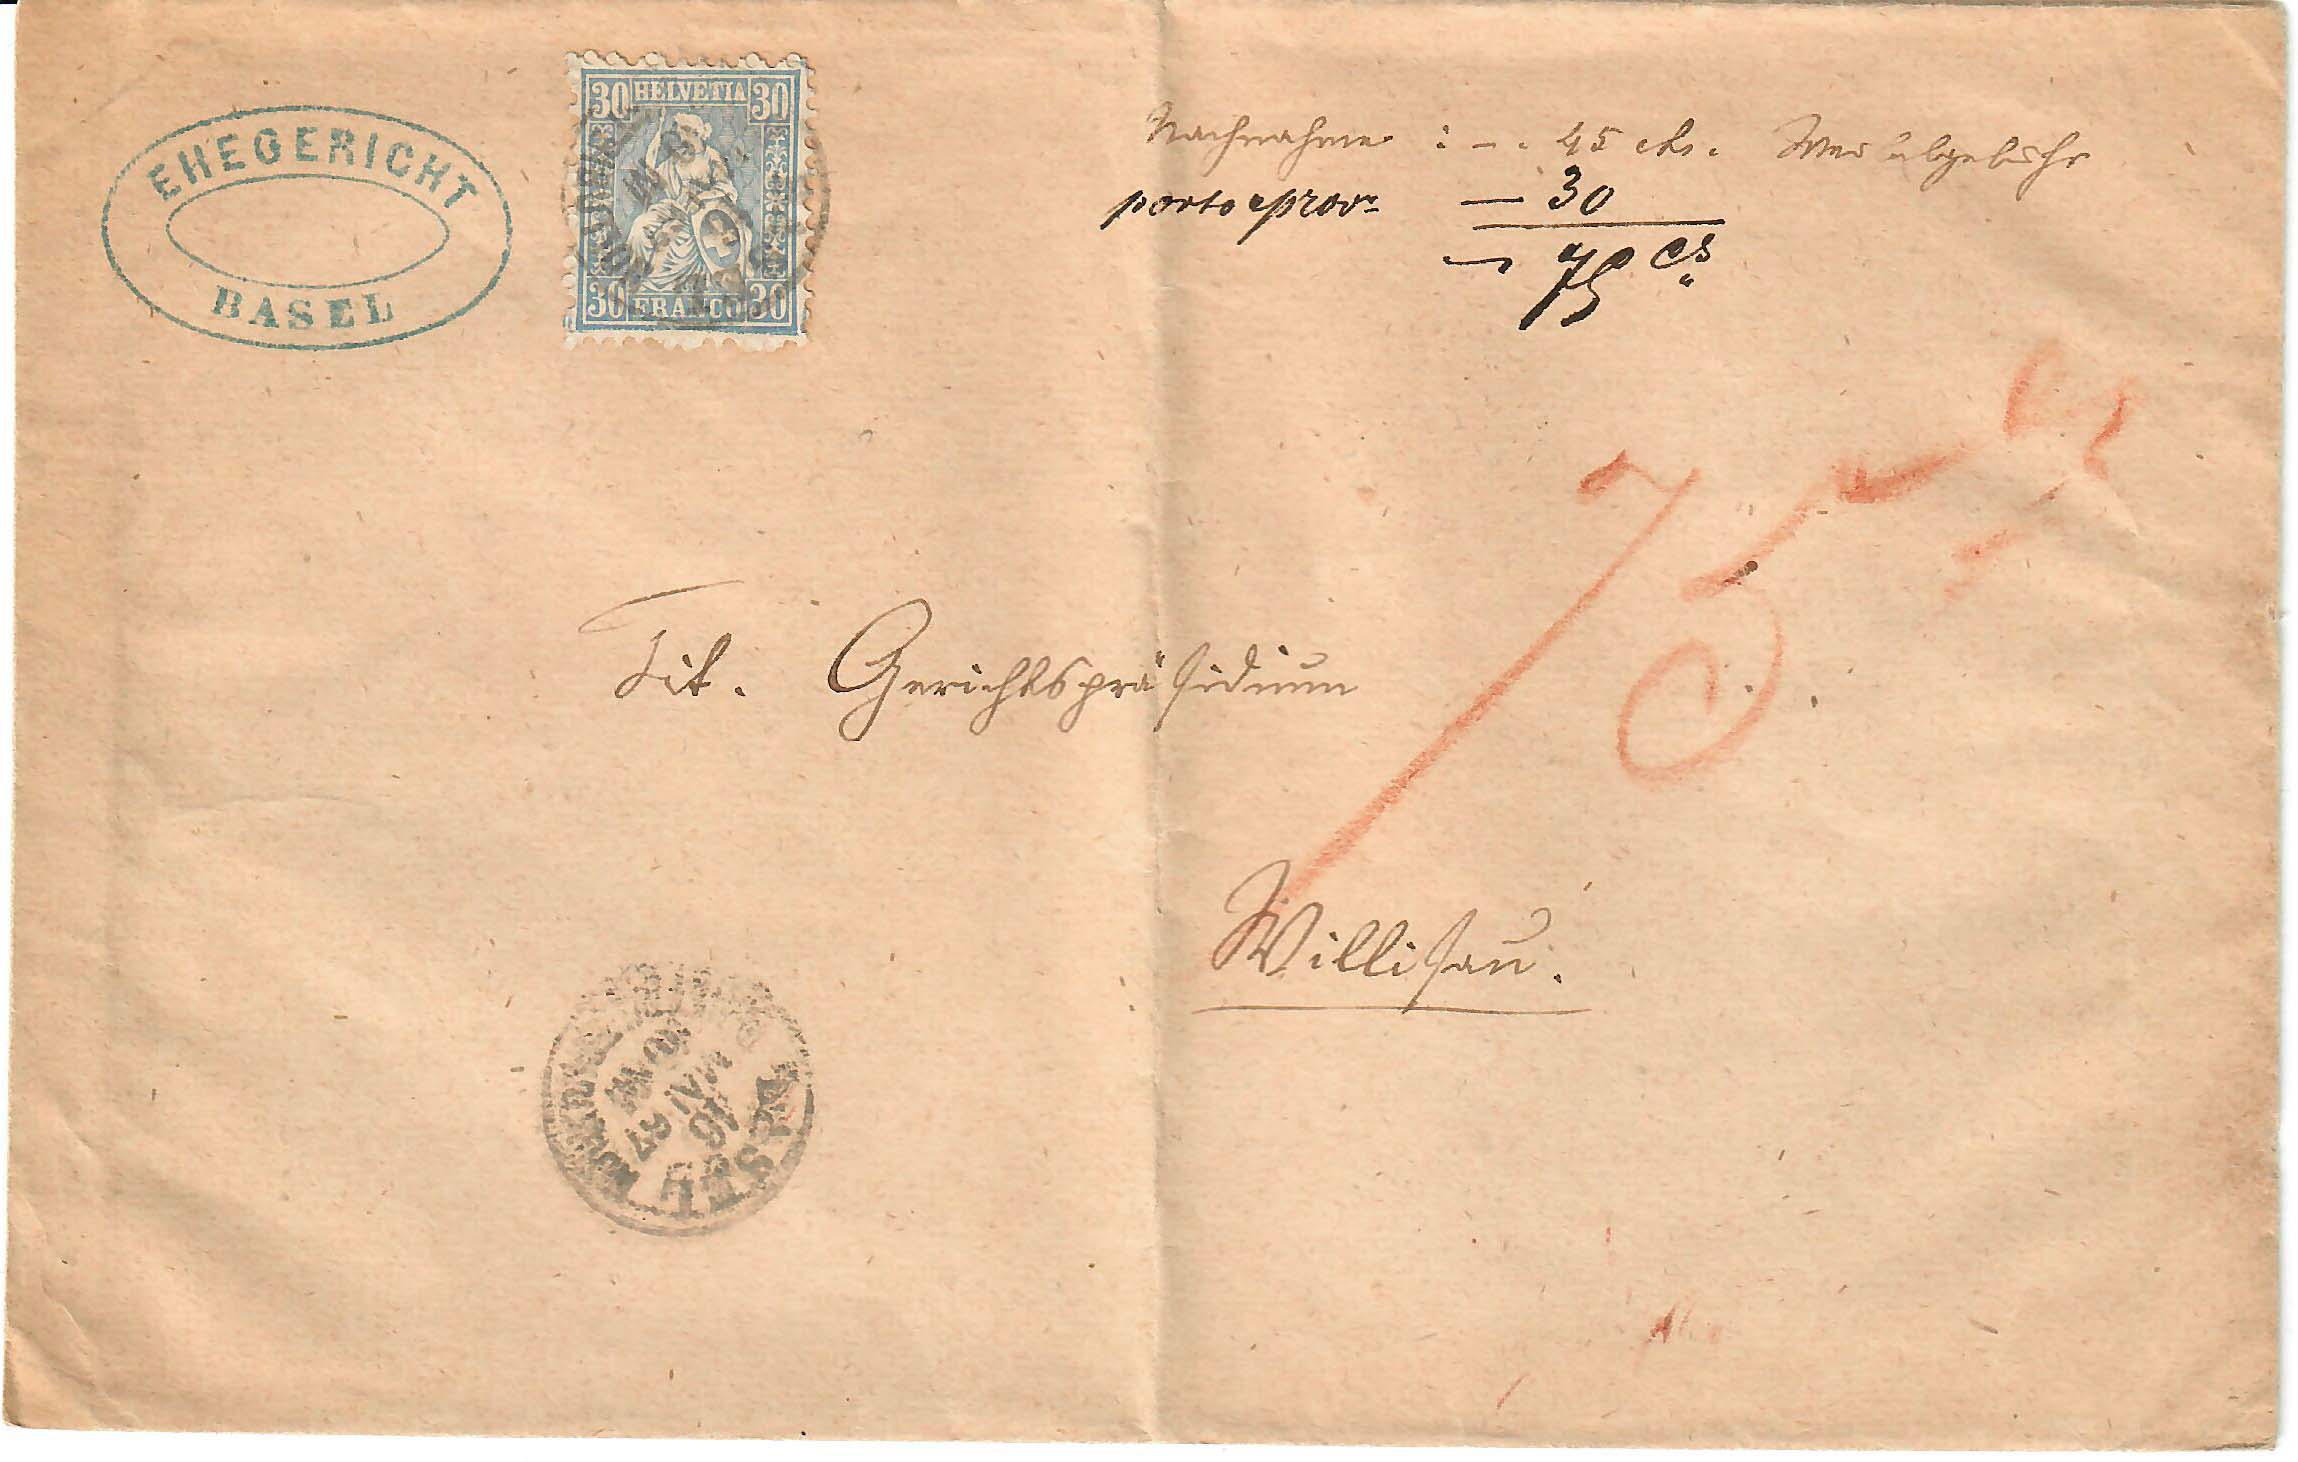 EHEGERICHT
BASEL
30 HELVETIA 30
30 FRANCO 30
Nachnahme : – . 45 cts.
porto & prov. — 30
– 75 cs
75
Tit. Gerichtspräsidium
Willisau.
BASEL
16
67
10